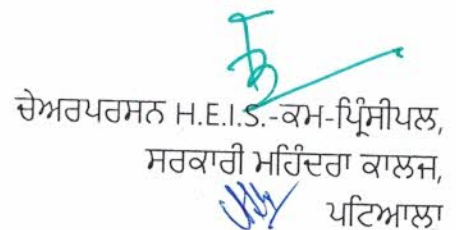 ਚੇਅਰਪਰਸਨ H.E.I.S.-ਕਮ-ਪ੍ਰਿੰਸੀਪਲ,
ਸਰਕਾਰੀ ਮਹਿੰਦਰਾ ਕਾਲਜ,
ਪਟਿਆਲਾ